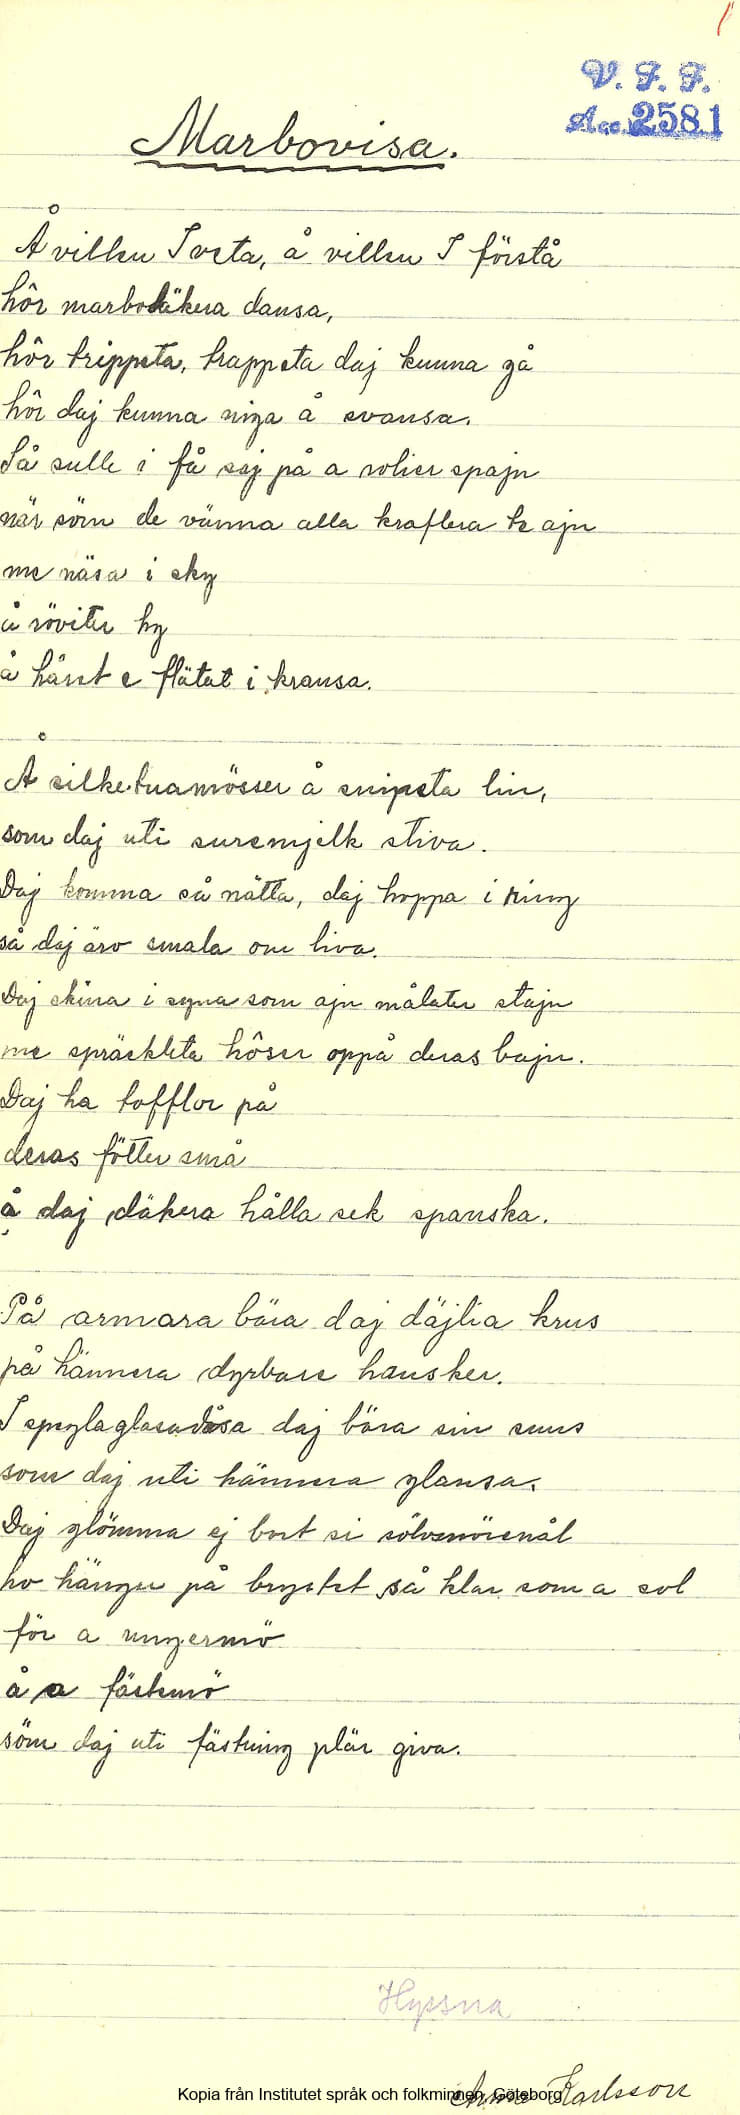 1
V. F. F.
Acc. 2581
Marbovisa.
Å villen I veta, å villen I förstå
hôr marbodäkera dansa,
hôr trippeta, trappeta daj kunna gå
hôr daj kunna niga å svansa.
Så sulle i få saj på a rolier spajn
när söm de vänna alla kraflera te ajn
me näsa i sky
å röviter hy
å håret e flätat i kransa.
Å silketuamösser å snipeta lin,
som daj uti suremjelk stiva.
Daj komma så nätta, daj hoppa i ring
så daj äro smala om liva.
Daj skina i syna som ajn målater stajn
me spräcklete hôser oppå deras bajn.
Daj ha tofflor på
deras fötter små
å daj däkera hålla sek spanska.
På armara bära daj däjlia krus
på hännera dyrbare hansker.
I speglaglasadåsa daj bära sin snus
som daj uti hännera glansa.
Daj glömma ej bort si sölvenörenål
ho hänger på brystet så klar som a sol
för a ungermö
å a fästemö
söm daj uti fästning plär giva.
Hyssna
Anna Karlsson
Kopia från Institutet språk och folkminnen, Göteborg